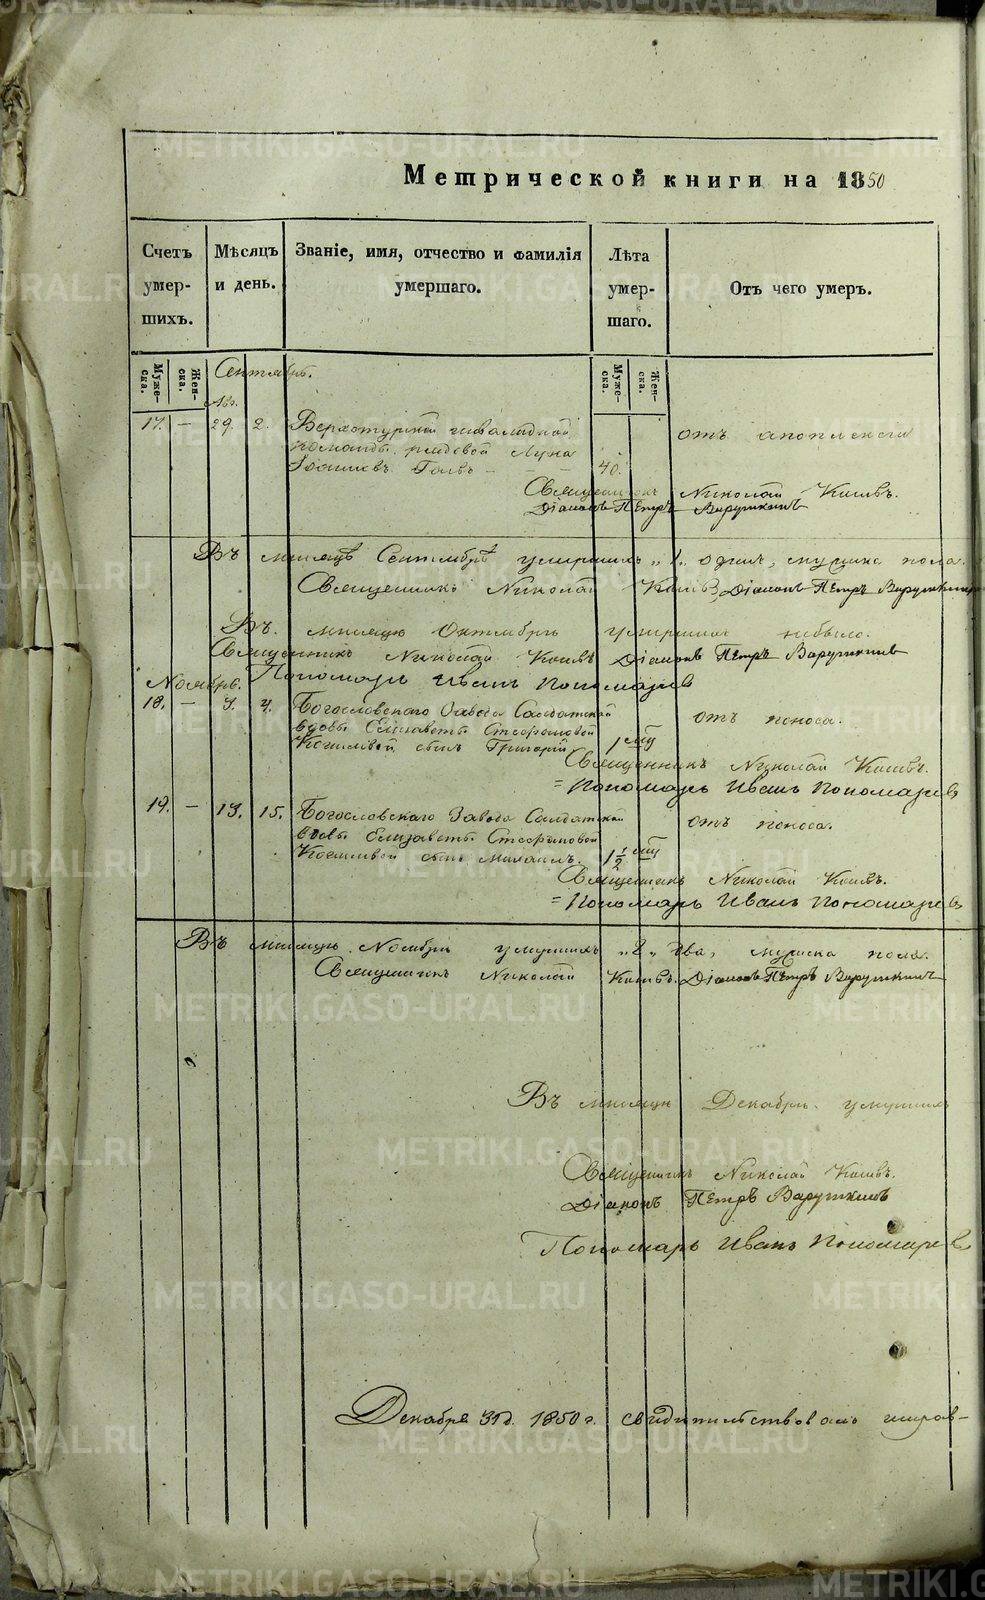 Метрической книги на 1850
Счетъ умер-шихъ.
Мѣсяцъ и день.
Званіе, имя, отчество и фамилія умершаго.
Лѣта умер-шаго.
Отъ чего умеръ.
Муже-ска.
Жен-ска.
Муже-ска.
Жен-ска.
Сентябрь.
Авг.
17. – 29. 2. Верхотурской инвалидной отъ апоплексіи
команды рядовой Лука
40.
Священникъ Николай
Діаконъ Петръ Варушкинъ
Въ мѣсяцѣ Сентябрѣ умершихъ „1„ одинъ, мужска пола.
Священникъ Николай Діаконъ Петръ Варушкинъ
Въ мѣсяцѣ Октябрѣ умершихъ небыло.
Священникъ Николай Діаконъ Петръ Варушкинъ
Пономарь Иванъ Пономаревъ
Ноябрь.
18. – Богословскаго Завода Солдатской отъ поноса.
вдовы Елисаветы Стефановой
сынъ Григорій 1 мѣ
Священникъ Николай
= Пономарь Иванъ Пономаревъ
19. – 13. 15. Богословскаго Завода Солдатской отъ поноса.
вдовы Елизаветы Стефановой
сынъ Михаилъ. 1 1/2 мѣ
Священникъ Николай
= Пономарь Иванъ Пономаревъ
Въ мѣсяцѣ Ноябрѣ умершихъ „2„ два, мужска пола.
Священникъ Николай Діаконъ Петръ Варушкинъ
Въ мѣсяцѣ Декабрѣ умершихъ
Священникъ Николай
Діаконъ Петръ Варушкинъ
Пономарь Иванъ Пономаревъ
Декабря 31д. 1850 г. свидѣтельствовалъ
METRIKI.GASO-URAL.RU